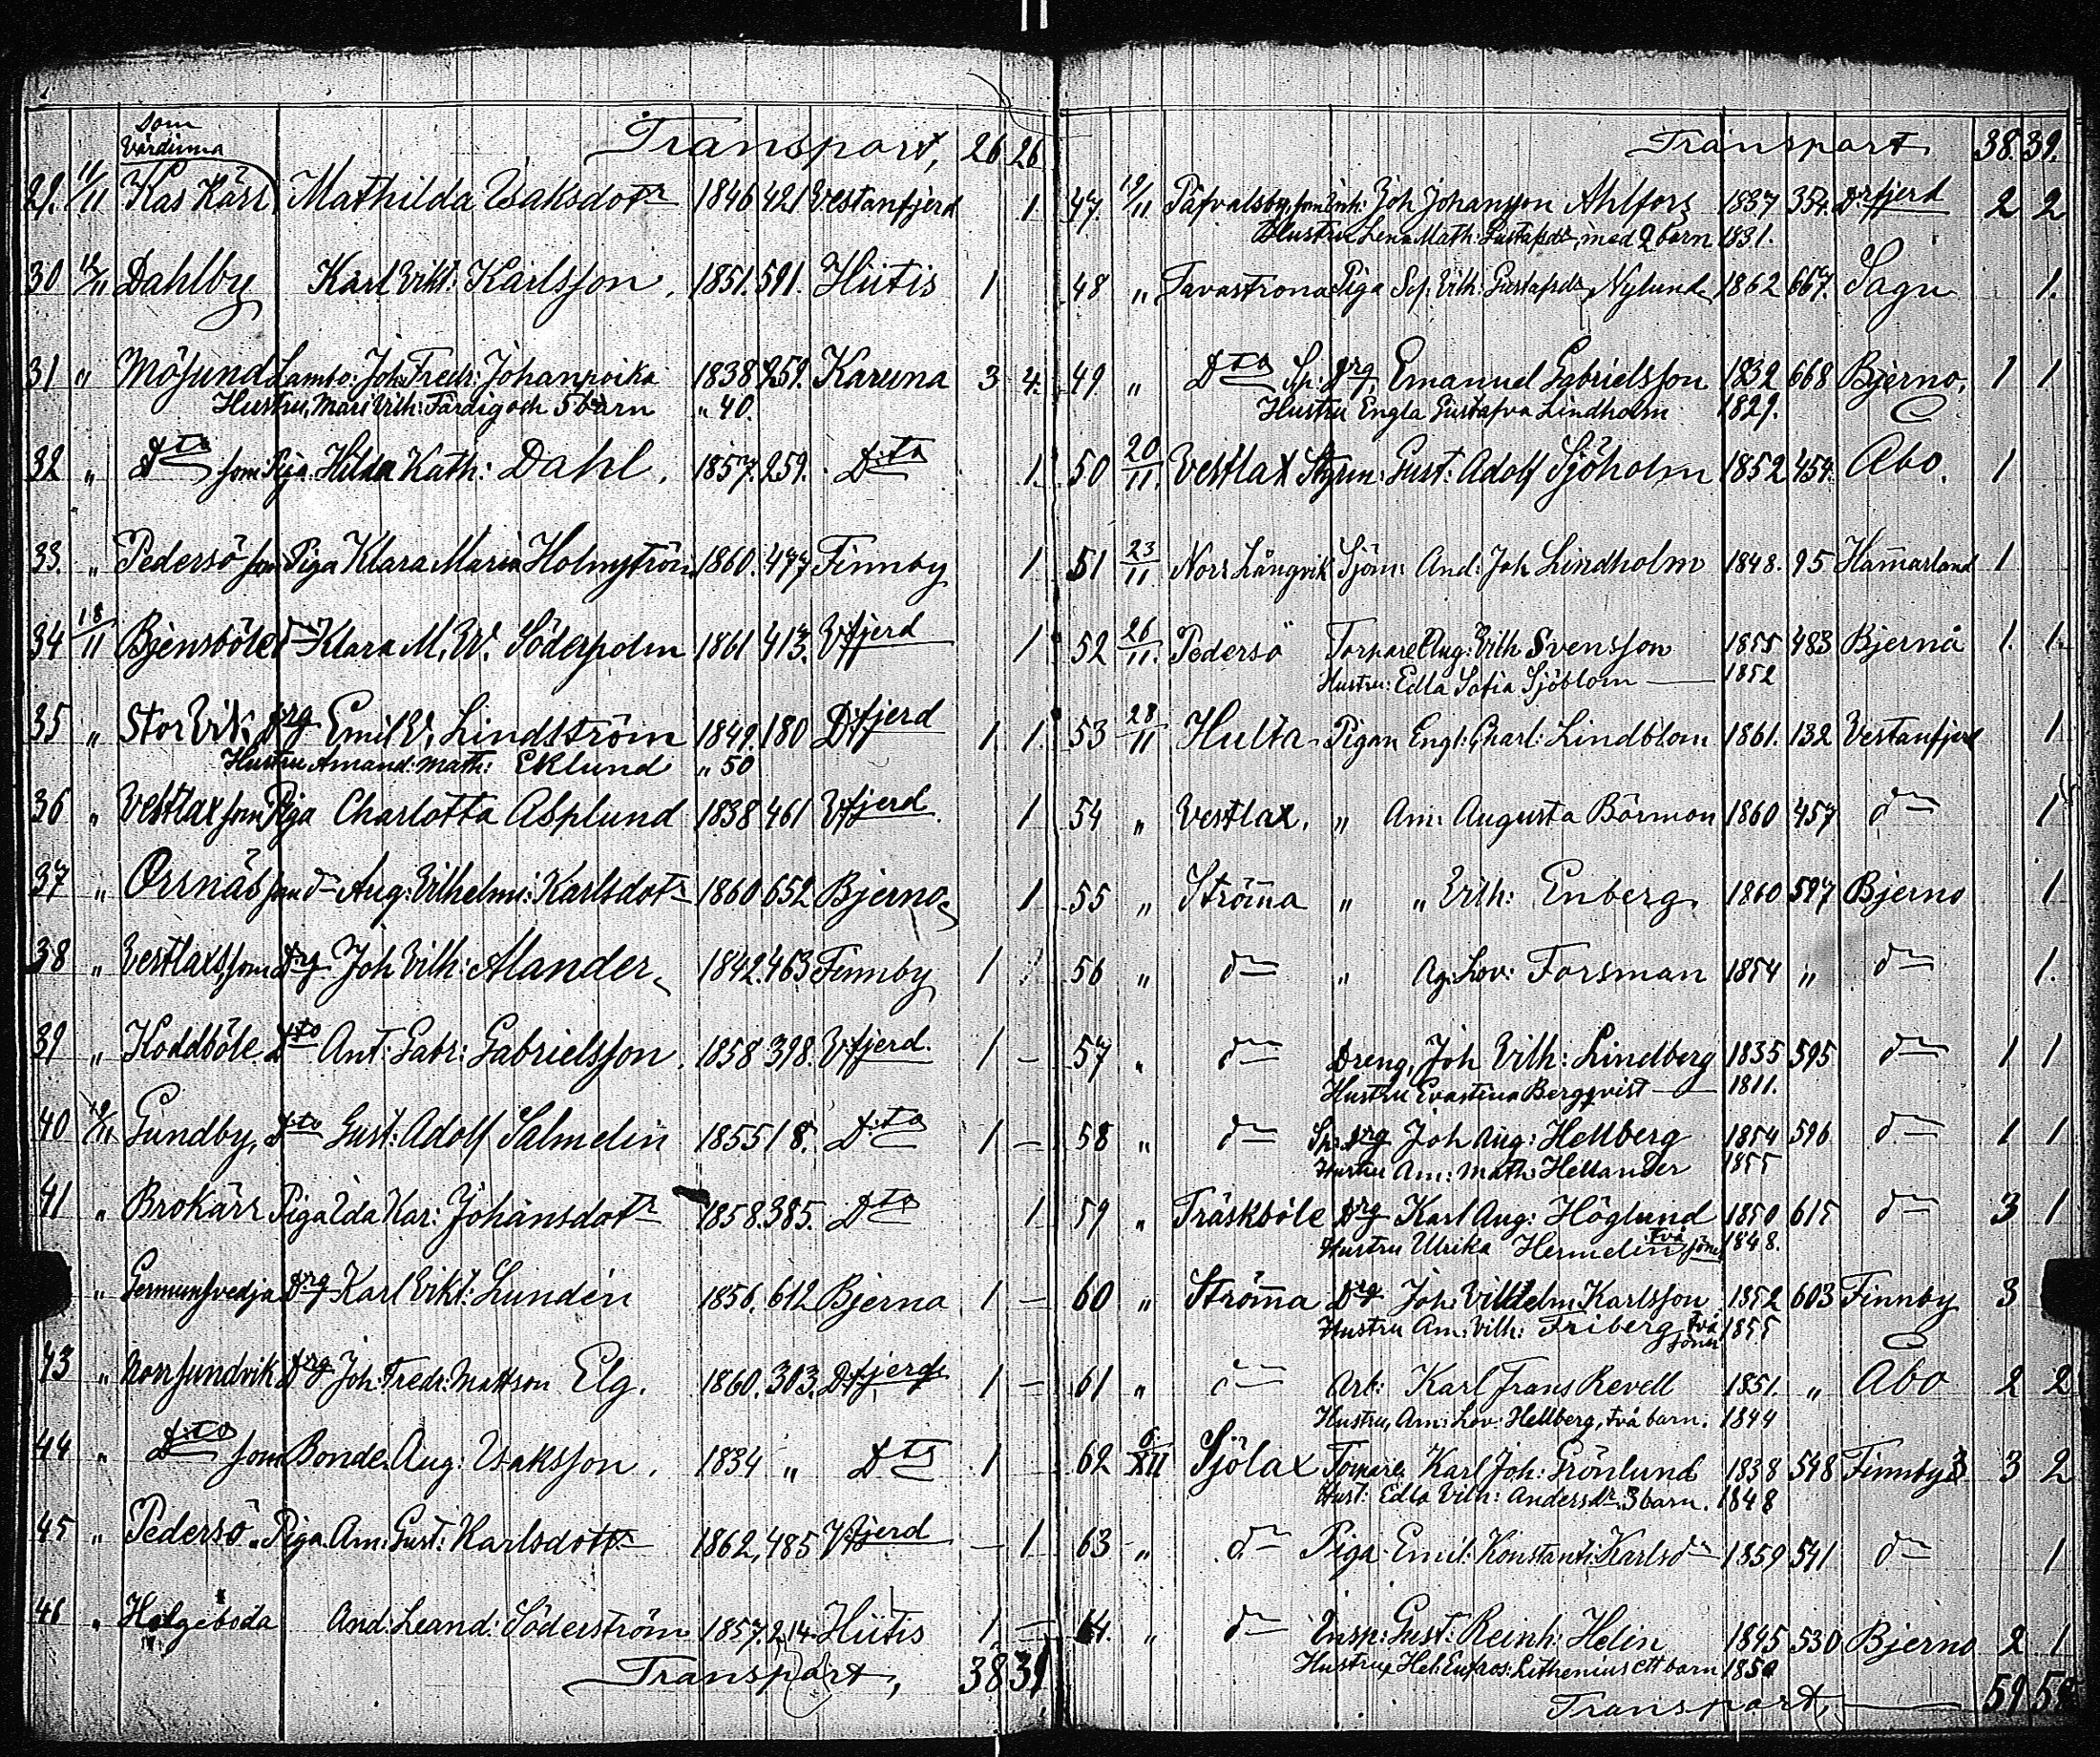 Som
Värdinna
Transport, 26 26
29. 11/11 Kas Kärl Mathilda Isaksdotr 1846 421 Vestanfjerd 1
30 12/11 Dahlby Karl Vikt: Karlsson, 1851. 591. Hiitis 1
31 " Mösund Lambo: Joh. Fredr: Johanpoika 1838 259. Karuna 3 4.
Hustru, Mari Vilh: Färdig och 5 barn " 40.
32 " Dto som Piga Hilda Kath: Dahl. 1857. 259. Dito 1.
33. " Pedersö som Piga Klara Maria Holmström 1860. 477 Finnby 1
34 18/11 Bjensböle do Klara M. W. Söderholm 1861 413. Vfjerd 1
35 " Stor Vik, Drg Emil V. Lindström 1849. 180 Drfjerd 1 1.
Hustru Amand: Math: Eklund " 50
36 " Vestlax som Piga Charlotta Asplund 1838. 461 Vfjerd. 1
37 " Örsnäs som do Aug: Vilhelmi: Karlsdotr 1860 652 Bjerno 1
38 " Vestlax som Drg Joh Vilh: Alander 1842. 463. Finnby 1
39 " Koddböle Dto Ant: Gabr: Gabrielsson. 1858 398. Vfjerd. 1 –
40 19/11 Gundby, Dto Gust: Adolf Salmelin 1855 18. Dto 1 –
41 " Brokärr Piga Ida Kar: Johansdotr 1858. 385. Dto 1
" Germundsvedja Drg Karl Vikt: Lundén 1856. 612 Bjerna 1 –
43 " Norrsundvik Drg Joh: Fredr: Mattson Elg. 1860. 303. Drfjerd 1 –
44 " Dito som Bonde. Aug: Isaksson. 1834 " Dto 1
45 " Pedersö. Piga. Am: Gust: Karlsdottr 1862, 485 Vfjerd – 1
46 " Helgeboda And: Leand: Söderström 1857. 214. Hiitis 1. –
Transport, 38 39
Transport 38. 39.
47. 19/11 Påfvalsby, som Inh: Joh Johansson Ahlfors 1837 354. Drfjerd 2 2
Hustru Lena Math: Gustafsdr, med 2 barn 1831.
48 " Tavastrona Piga Sof. Vilh: Gustafsdr Nylund 1862 667. Sagu 1.
49. " Dto Sp: Drg. Emanuel Gabrielsson 1832 668 Bjerno, 1 1
Hustru Engla Gustafva Lindholm 1829.
50 20/11. Vestlax Styrm: Gust: Adolf Sjöholm 1852 454. Åbo. 1
51 23/11. Norr Långvik Sjöm: And: Joh Lindholm 1848. 95 Ham̄arland 1
52 26/11. Pedersö Torpare Aug: Vilh Svensson 1855 483 Bjernå 1. 1.
Hustru: Edla Sofia Sjöblom — 1852
53 28/11 Hulta Pigan Engl: Charl: Lindblom 1861. 132 Vestanfjerd 1
54 " Vestlax, " Am: Augusta Börman 1860 457 do 1
55 " Ström̄a " " Vilh: Enberg, 1860 597 Bjerno 1
56 " do " Ag: Lov: Forsman 1854 " do 1.
57 " do Dreng, Joh Vilh: Lindberg 1835 595 do 1 1
Hustru Evastina Bergqvist — 1811.
58 " do Sp: Drg Joh Aug: Hellberg 1854 596 do 1 1
Hustru Am: Math: Hellander 1855
59 " Träskböle Drg Karl Aug: Höglund 1850 615 do 3 1
Hustru Ulrika Hermelin, två söner 1848.
60 " Ström̄a Drg Joh. Vilhelm Karlsson 1852 603 Finnby 3
Hustru Am: Vilh: Friberg, två söner 1855
61 " do Arb: Karl Frans Revell 1851. " Åbo 2 2
Hustru, Am: Lov: Hellberg, två barn. 1844
62 6/XII Sjölax Torpare Karl Joh: Grönlund 1838 548 Finnby 3 2
Hust: Edla Vilh: Andersdr. 3 barn. 1848
63 " do Piga Emil: Konstanti: Karlsdr 1859 541 do 1
64. " do Insp: Gust: Reinh: Helin 1845 530 Bjerno 2 1
Hustru Hel: Eufros: Lithenius ett barn 1850
Transport, — 59